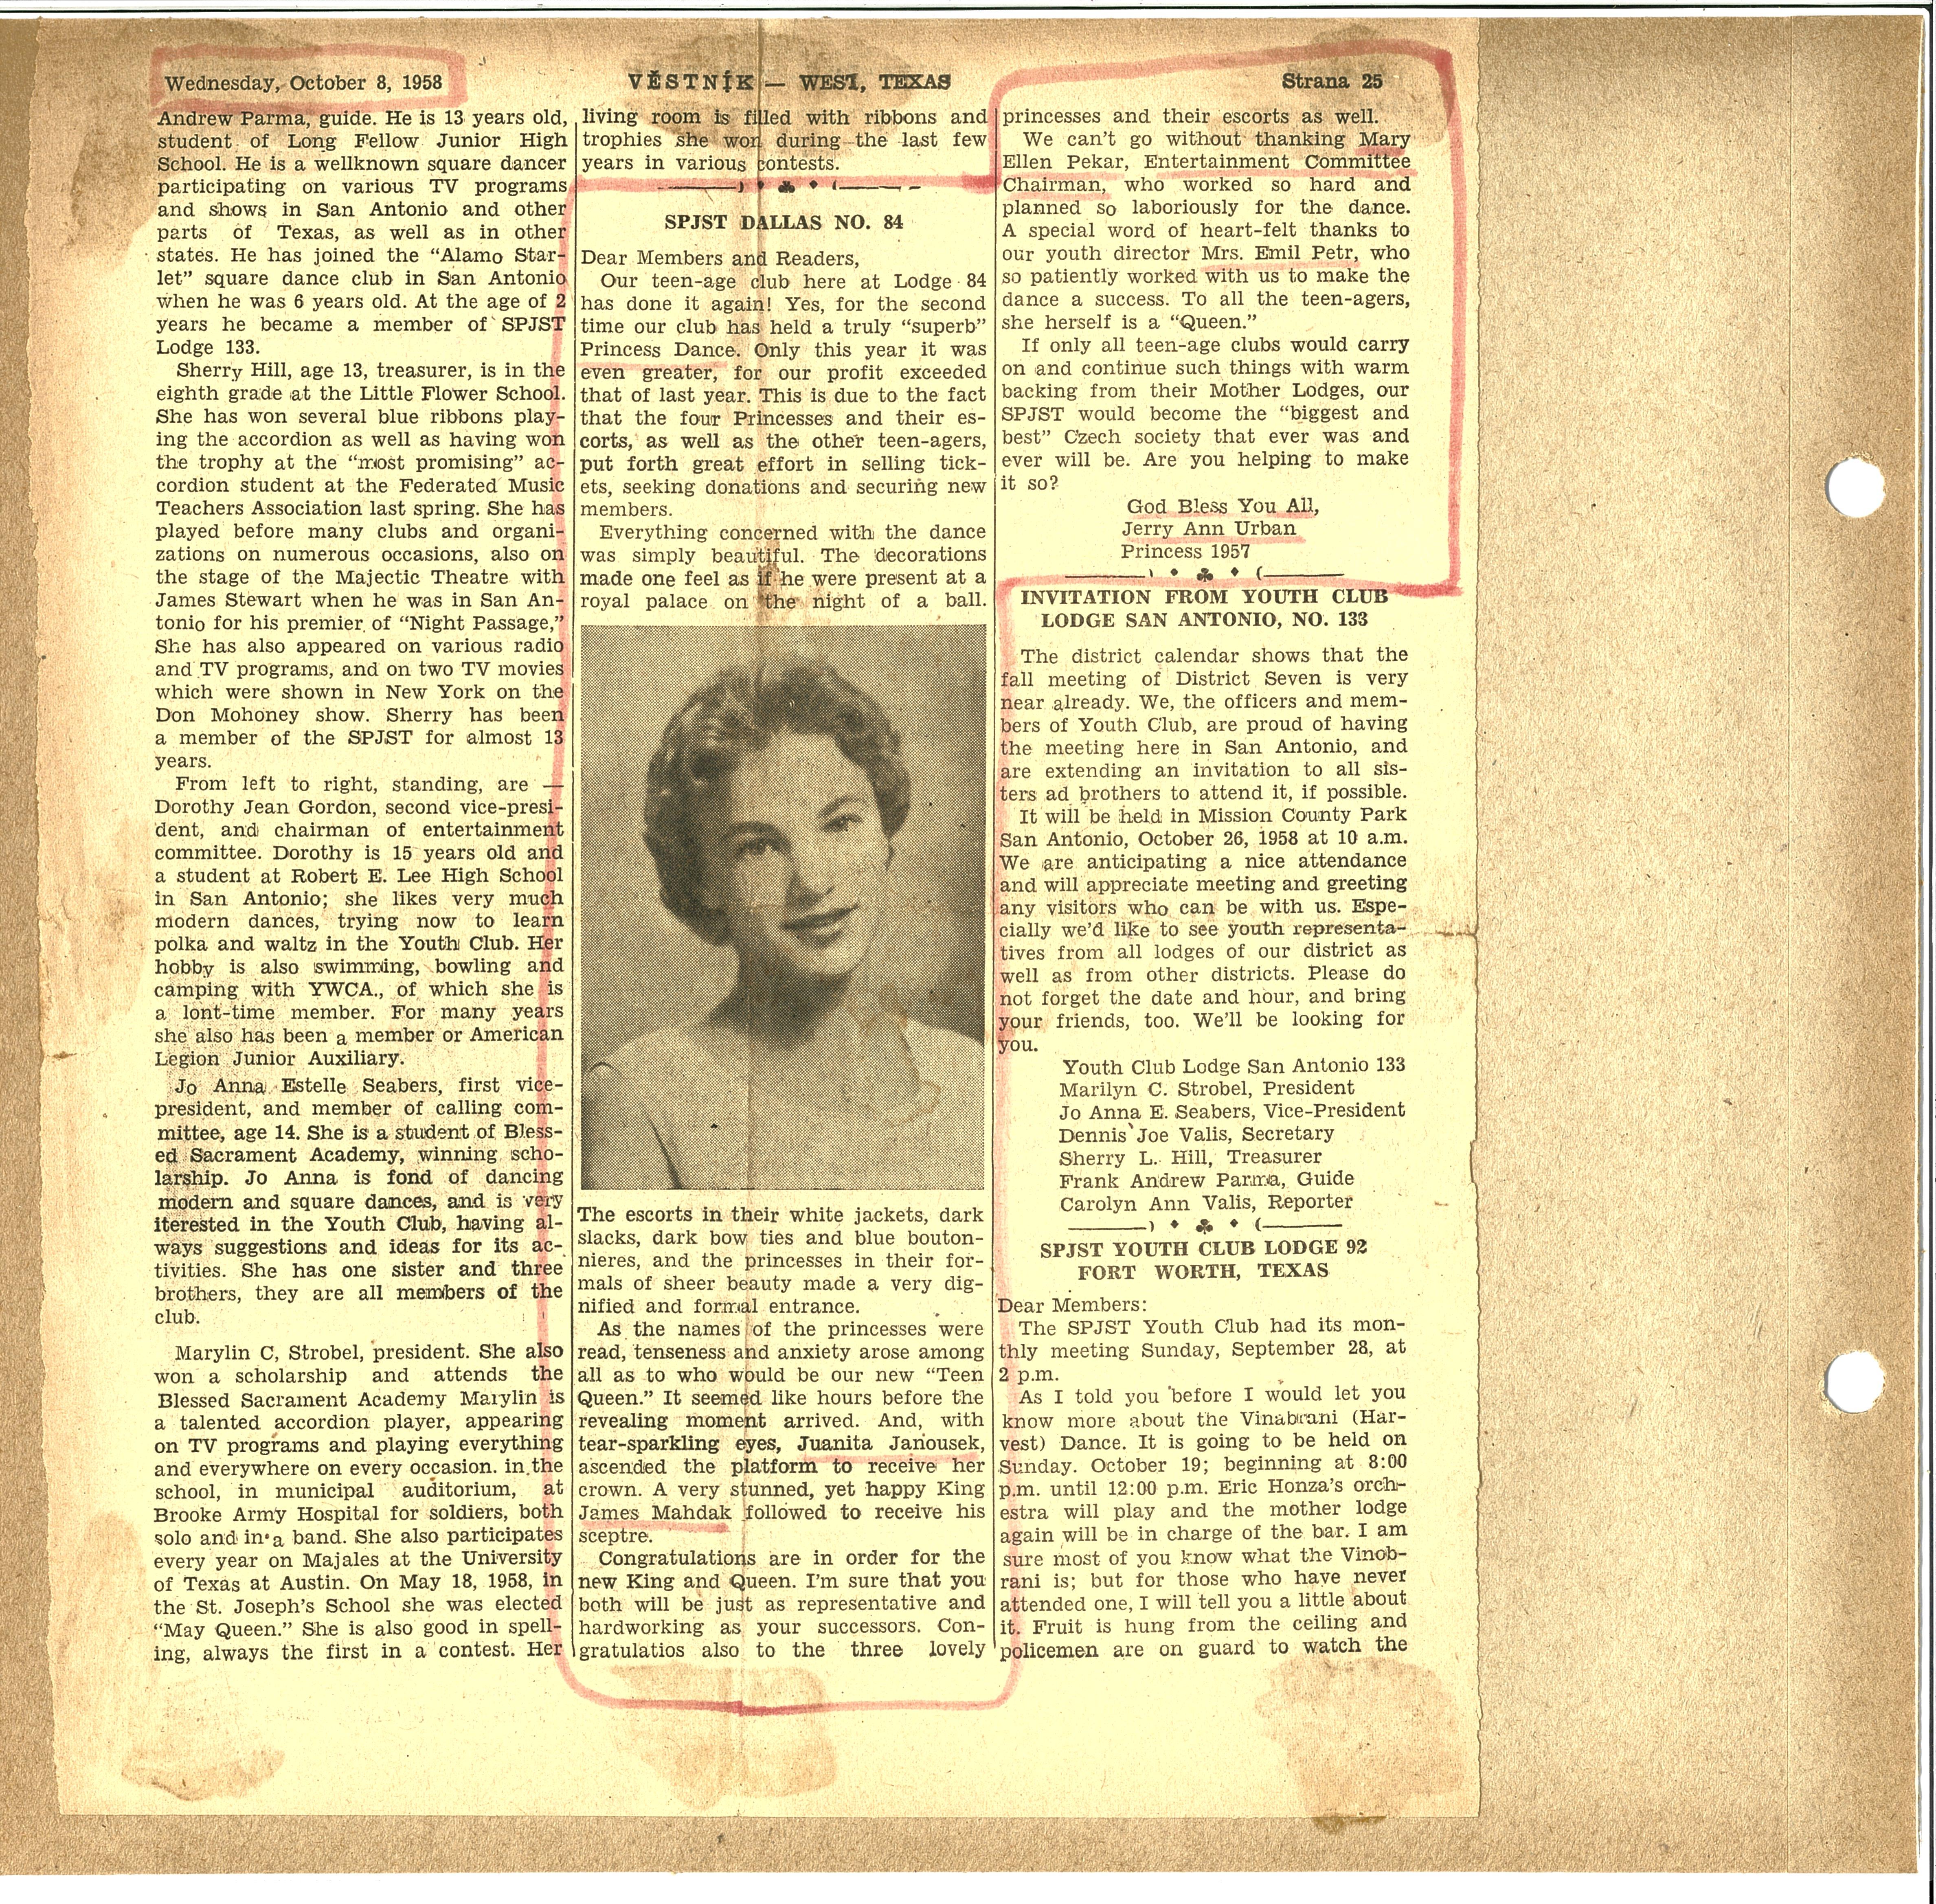 Wednesday, October 8, 1958
VĚSTNÍK — WEST, TEXAS
Strana 25
Andrew Parma, guide. He is 13 years old,
student of Long Fellow Junior High
School. He is a wellknown square dancer
participating on various TV programs
and shows in San Antonio and other
parts of Texas, as well as in other
states. He has joined the “Alamo Star-
let” square dance club in San Antonio
when he was 6 years old. At the age of 2
years he became a member of SPJST
Lodge 133.
Sherry Hill, age 13, treasurer, is in the
eighth grade at the Little Flower School.
She has won several blue ribbons play-
ing the accordion as well as having won
the trophy at the “most promising” ac-
cordion student at the Federated Music
Teachers Association last spring. She has
played before many clubs and organi-
zations on numerous occasions, also on
the stage of the Majectic Theatre with
James Stewart when he was in San An-
tonio for his premier of “Night Passage,”
She has also appeared on various radio
and TV programs, and on two TV movies
which were shown in New York on the
Don Mohoney show. Sherry has been
a member of the SPJST for almost 13
years.
From left to right, standing, are —
Dorothy Jean Gordon, second vice-presi-
dent, and chairman of entertainment
committee. Dorothy is 15 years old and
a student at Robert E. Lee High School
in San Antonio; she likes very much
modern dances, trying now to learn
polka and waltz in the Youth Club. Her
hobby is also swimming, bowling and
camping with YWCA., of which she is
a lont-time member. For many years
she also has been a member or American
Legion Junior Auxiliary.
Jo Anna Estelle Seabers, first vice-
president, and member of calling com-
mittee, age 14. She is a student of Bless-
ed Sacrament Academy, winning scho-
larship. Jo Anna is fond of dancing
modern and square dances, and is very
iterested in the Youth Club, having al-
ways suggestions and ideas for its ac-
tivities. She has one sister and three
brothers, they are all members of the
club.
Marylin C, Strobel, president. She also
won a scholarship and attends the
Blessed Sacrament Academy Marylin is
a talented accordion player, appearing
on TV programs and playing everything
and everywhere on every occasion. in the
school, in municipal auditorium, at
Brooke Army Hospital for soldiers, both
solo and in a band. She also participates
every year on Majales at the University
of Texas at Austin. On May 18, 1958, in
the St. Joseph’s School she was elected
“May Queen.” She is also good in spell-
ing, always the first in a contest. Her
living room is filled with ribbons and
trophies she won during the last few
years in various contests.
SPJST DALLAS NO. 84
Dear Members and Readers,
Our teen-age club here at Lodge 84
has done it again! Yes, for the second
time our club has held a truly “superb”
Princess Dance. Only this year it was
even greater, for our profit exceeded
that of last year. This is due to the fact
that the four Princesses and their es-
corts, as well as the other teen-agers,
put forth great effort in selling tick-
ets, seeking donations and securing new
members.
Everything concerned with the dance
was simply beautiful. The decorations
made one feel as if he were present at a
royal palace on the night of a ball.
The escorts in their white jackets, dark
slacks, dark bow ties and blue bouton-
nieres, and the princesses in their for-
mals of sheer beauty made a very dig-
nified and formal entrance.
As the names of the princesses were
read, tenseness and anxiety arose among
all as to who would be our new “Teen
Queen.” It seemed like hours before the
revealing moment arrived. And, with
tear-sparkling eyes, Juanita Janousek,
ascended the platform to receive her
crown. A very stunned, yet happy King
James Mahdak followed to receive his
sceptre.
Congratulations are in order for the
new King and Queen. I’m sure that you
both will be just as representative and
hardworking as your successors. Con-
gratulatios also to the three lovely
princesses and their escorts as well.
We can’t go without thanking Mary
Ellen Pekar, Entertainment Committee
Chairman, who worked so hard and
planned so laboriously for the dance.
A special word of heart-felt thanks to
our youth director Mrs. Emil Petr, who
so patiently worked with us to make the
dance a success. To all the teen-agers,
she herself is a “Queen.”
If only all teen-age clubs would carry
on and continue such things with warm
backing from their Mother Lodges, our
SPJST would become the “biggest and
best” Czech society that ever was and
ever will be. Are you helping to make
it so?
God Bless You All,
Jerry Ann Urban
Princess 1957
INVITATION FROM YOUTH CLUB
LODGE SAN ANTONIO, NO. 133
The district calendar shows that the
fall meeting of District Seven is very
near already. We, the officers and mem-
bers of Youth Club, are proud of having
the meeting here in San Antonio, and
are extending an invitation to all sis-
ters ad brothers to attend it, if possible.
It will be held in Mission County Park
San Antonio, October 26, 1958 at 10 a.m.
We are anticipating a nice attendance
and will appreciate meeting and greeting
any visitors who can be with us. Espe-
cially we’d like to see youth representa-
tives from all lodges of our district as
well as from other districts. Please do
not forget the date and hour, and bring
your friends, too. We’ll be looking for
you.
Youth Club Lodge San Antonio 133
Marilyn C. Strobel, President
Jo Anna E. Seabers, Vice-President
Dennis Joe Valis, Secretary
Sherry L. Hill, Treasurer
Frank Andrew Parma, Guide
Carolyn Ann Valis, Reporter
SPJST YOUTH CLUB LODGE 92
FORT WORTH, TEXAS
Dear Members:
The SPJST Youth Club had its mon-
thly meeting Sunday, September 28, at
2 p.m.
As I told you before I would let you
know more about the Vinabrani (Har-
vest) Dance. It is going to be held on
Sunday. October 19; beginning at 8:00
p.m. until 12:00 p.m. Eric Honza’s orch-
estra will play and the mother lodge
again will be in charge of the bar. I am
sure most of you know what the Vinob-
rani is; but for those who have never
attended one, I will tell you a little about
it. Fruit is hung from the ceiling and
policemen are on guard to watch the